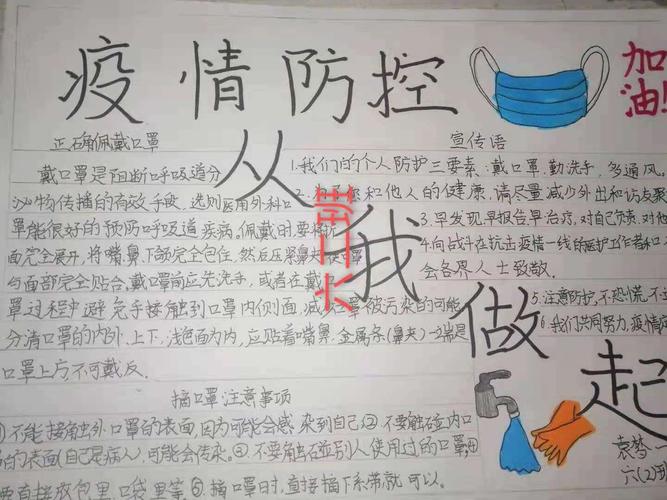 疫情防控
加油!
从我做起
正确佩戴口罩
戴口罩是阻断呼吸道分
泌物传播的有效手段,选则医用外科口
罩能很好的预防呼吸道疾病。佩戴时要将折
面完全展开,将嘴鼻、下颌完全包住,然后压紧鼻夹使口罩
与面部完全贴合。戴口罩前应先洗手,或者在戴口
罩过程中避免手接触到口罩内侧面,减少口罩被污染的可能
分清口罩的内外、上下,浅色面为内,应贴着嘴鼻,金属条(鼻夹)一端是
口罩上方,不可戴反.
摘口罩注意事项
①不能接触外口罩的表面,因为可能会感染到自己②不要触碰内口
的表面(自己是病人)可能会传染。③不要触碰别人使用过的口罩④
要直接放包里、口袋里等⑤.摘口罩时,直接摘下系带就可以.
宣传语
1.我们的个人防护三要素:戴口罩.勤洗手、多通风。
2.和他人的健康.请尽量减少外出和访友聚
3.早发现.早报告.早治疗,对自己负责.对他
4.向战斗在抗击疫情一线的医护工作者和
会各界人士致敬.
5.注意防护,不恐慌.不
6.我们共同努力,疫情
袁梦一
六(2)班